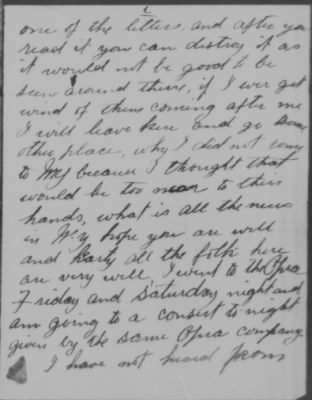 one of the letters, and after you
read it you can distroy it as
it would not be good to be
seen around there, if I ever get
wind of them coming after me
I will leave here and go some
other place, why I did not come
to because I thought that
would be too near to their
hands, what is all the news
in hope you are well
and Harty all the folk here
are very well, I went to the Opra
Friday and Saturday night and
am going to a consert to-night
given by the same Opra company.
I have not heard from